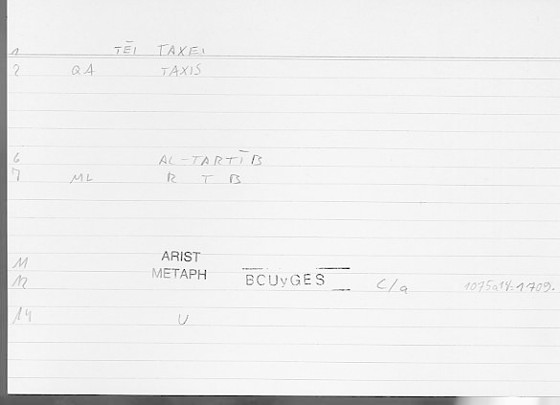 1 TĒI TAXEI
2 QA TAXIS
6 AL-TARTĪB
7 ML R T B
11 ARIST
12 METAPH BCUyGES C/a 1075a14:1709.
14 U